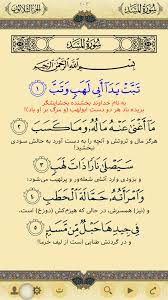 الجزء الثلاثون
سُورَةُ المَسَدِ
سُورَةُ المَسَدِ
بِسْمِ اللَّهِ الرَّحْمَٰنِ الرَّحِيمِ
تَبَّتْ يَدَا أَبِي لَهَبٍ وَتَبَّ ١
به نام خداوند بخشنده بخشایشگر
بریده باد هر دو دست ابولهب (و مرگ بر او باد)!
مَا أَغْنَىٰ عَنْهُ مَالُهُ وَمَا كَسَبَ ٢
هرگز مال و ثروتش و آنچه را به دست آورد به حالش سودی
نبخشید!
سَيَصْلَىٰ نَارًا ذَاتَ لَهَبٍ ٣
و بزودی وارد آتشی شعله‌ور و پرلهیب می‌شود؛
وَامْرَأَتُهُ حَمَّالَةَ الْحَطَبِ ٤
و (نیز) همسرش، در حالی که هیزم‌کش (دوزخ) است،
فِي جِيدِهَا حَبْلٌ مِنْ مَسَدٍ ٥
و در گردنش طنابی است از لیف خرما!